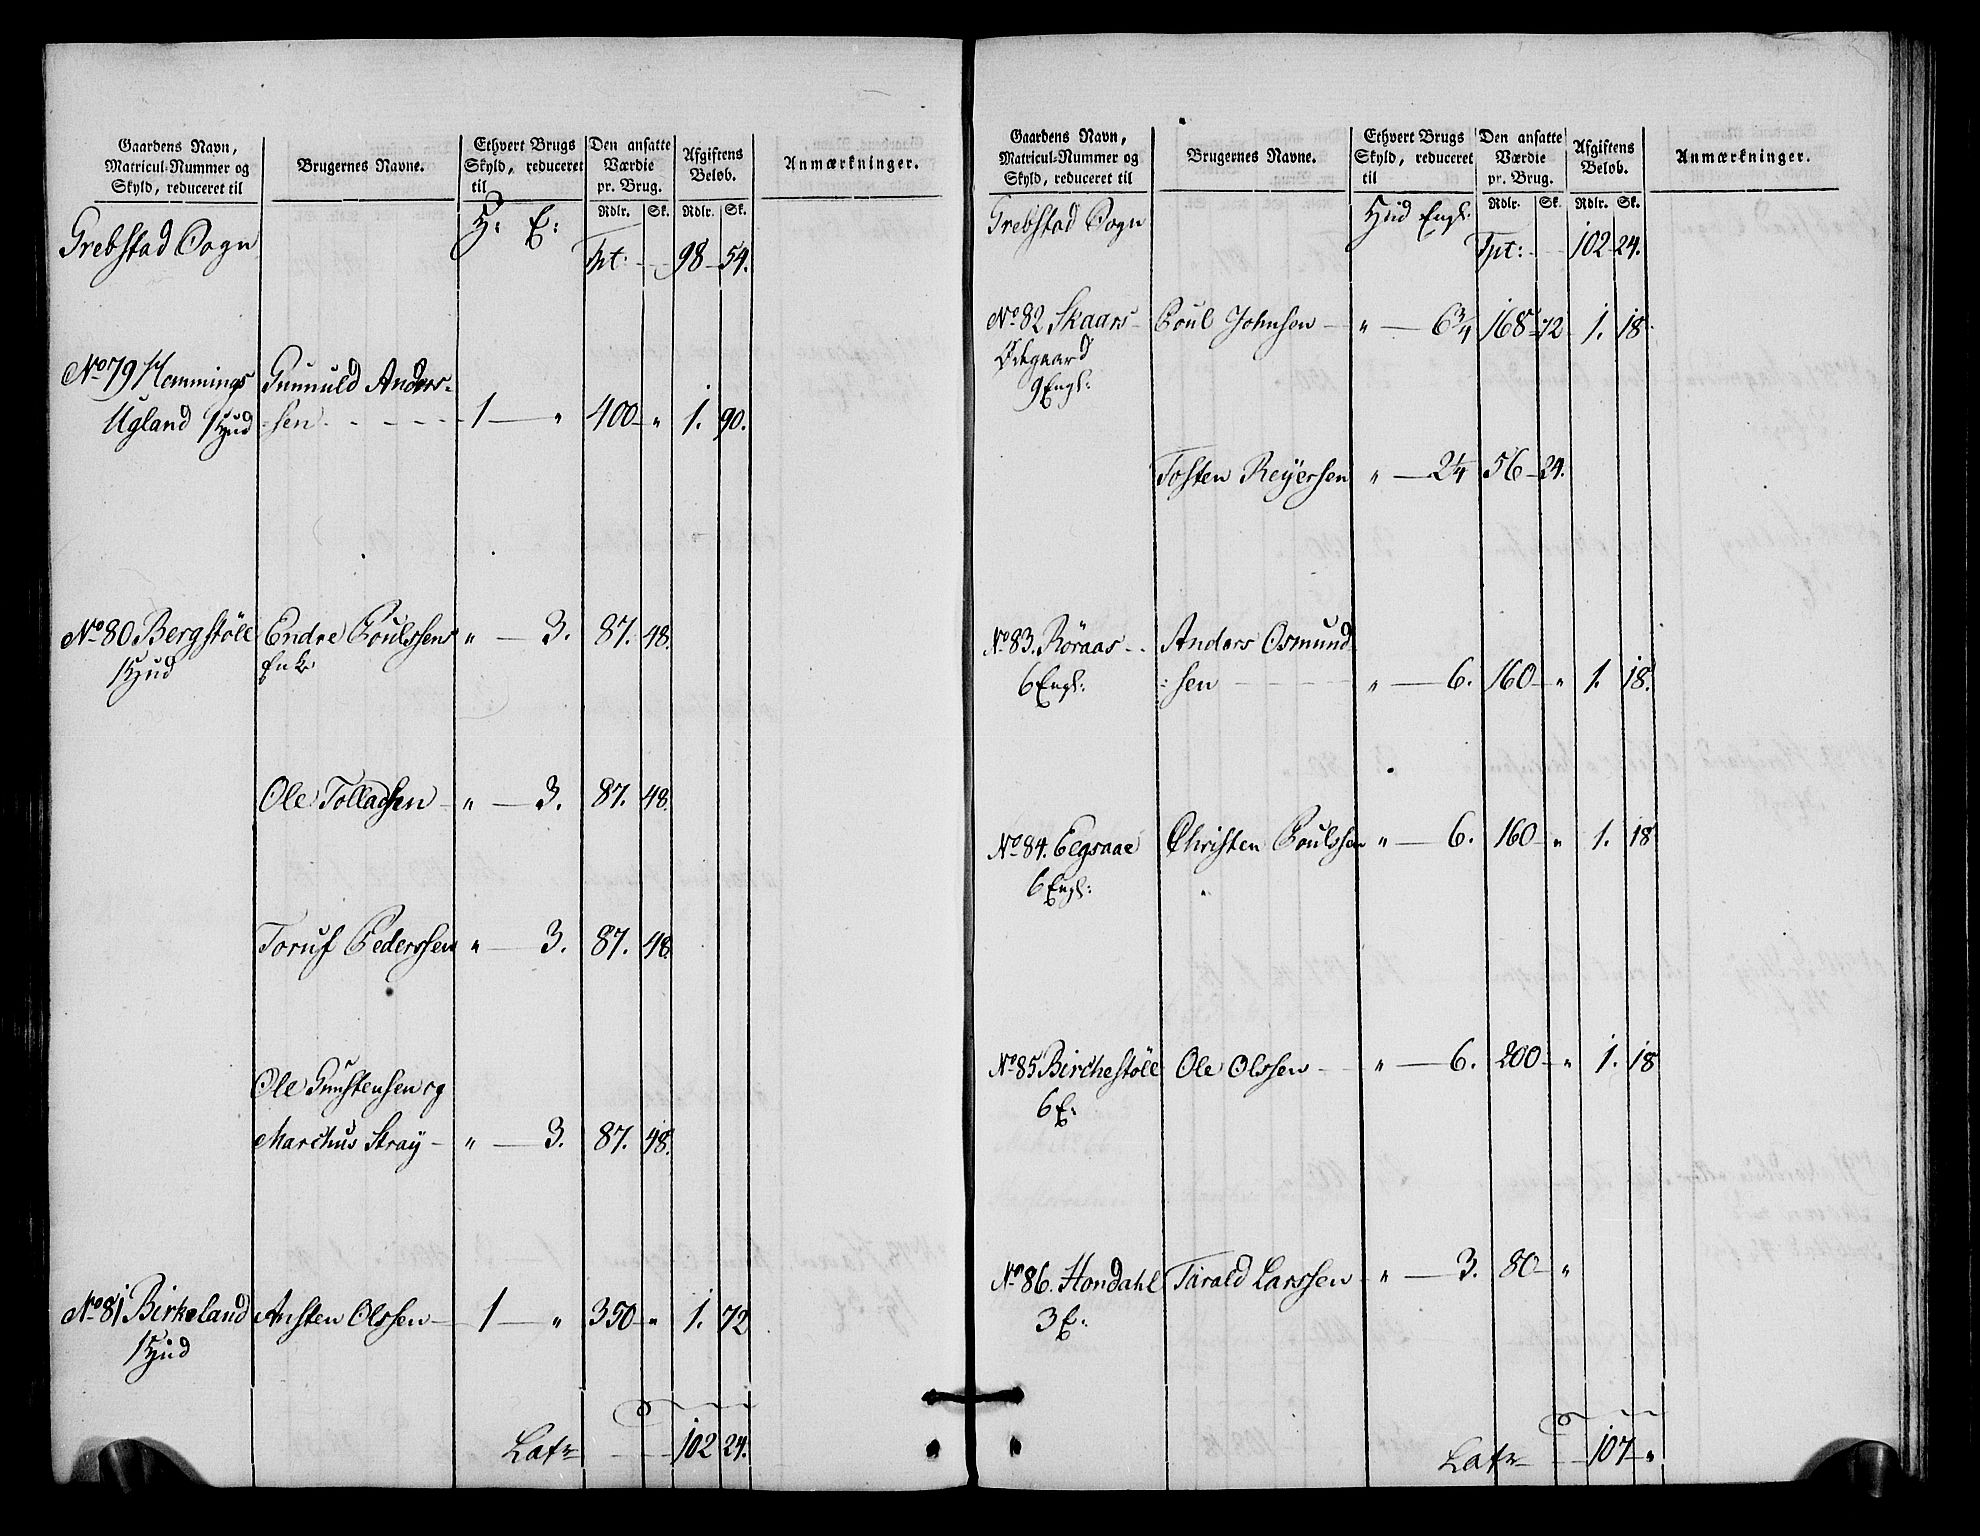 Gaardens Navn,
Matricul-Nummer og
Skyld, reduceret til
Brugernes Navne.
Ethvert Brugs
Skyld, reduceret
til
Den ansatte
Værdie
pr. Brug.
Afgiftens
Beløb.
Anmærkninger.
Rdlr. Sk. Rdlr. Sk.
H: E:
Grebstad Sogn
Tpt: 98 54.
No 79 Hemmings Gunnuld Anders-
Ugland 1 Hud -sen 1 " 400 " 1. 90.
No 80 Bergstöll Endre Poulssens " 3. 87. 48.
1 Hud Enke
Ole Tolladsen " 3. 87. 48.
Toruf Pederssen " 3. 87. 48
Ole Gunstensen og
Marchus Straÿ " 3. 87. 48.
No 81 Birkeland Austen Olssen 1 " 350 " 1. 72
1 Hud
Latr 102 24.
Gaardens Navn,
Matricul-Nummer og
Skyld, reduceret til
Brugernes Navne.
Ethvert Brugs
Skyld, reduceret
til
Den ansatte
Værdie
pr. Brug.
Afgiftens
Beløb.
Anmærkninger.
Rdlr. Sk. Rdlr. Sk.
Grebstad Sogn Hud Engl:
Tpt: 102 24.
No 82 Skaars Poul Johnsen " 6 3/4 168 72 1. 18.
Ødegaard
9 Engl:
Tosten Reÿersen " 2 1/4 56 24.
No 83. Röraas Anders Osmund
6 Engl: :sen " 6. 160 " 1. 18.
No 84. Eegsaae Christen Poulssen " 6. 160 " 1. 18
6 Engl:
No 85 Birchestöll Ole Olssen " 6. 200 " 1. 18
6 E:
No 86. Hondahl Tarald Larssen " 3. 80 "
3 E:
Latr 107 "